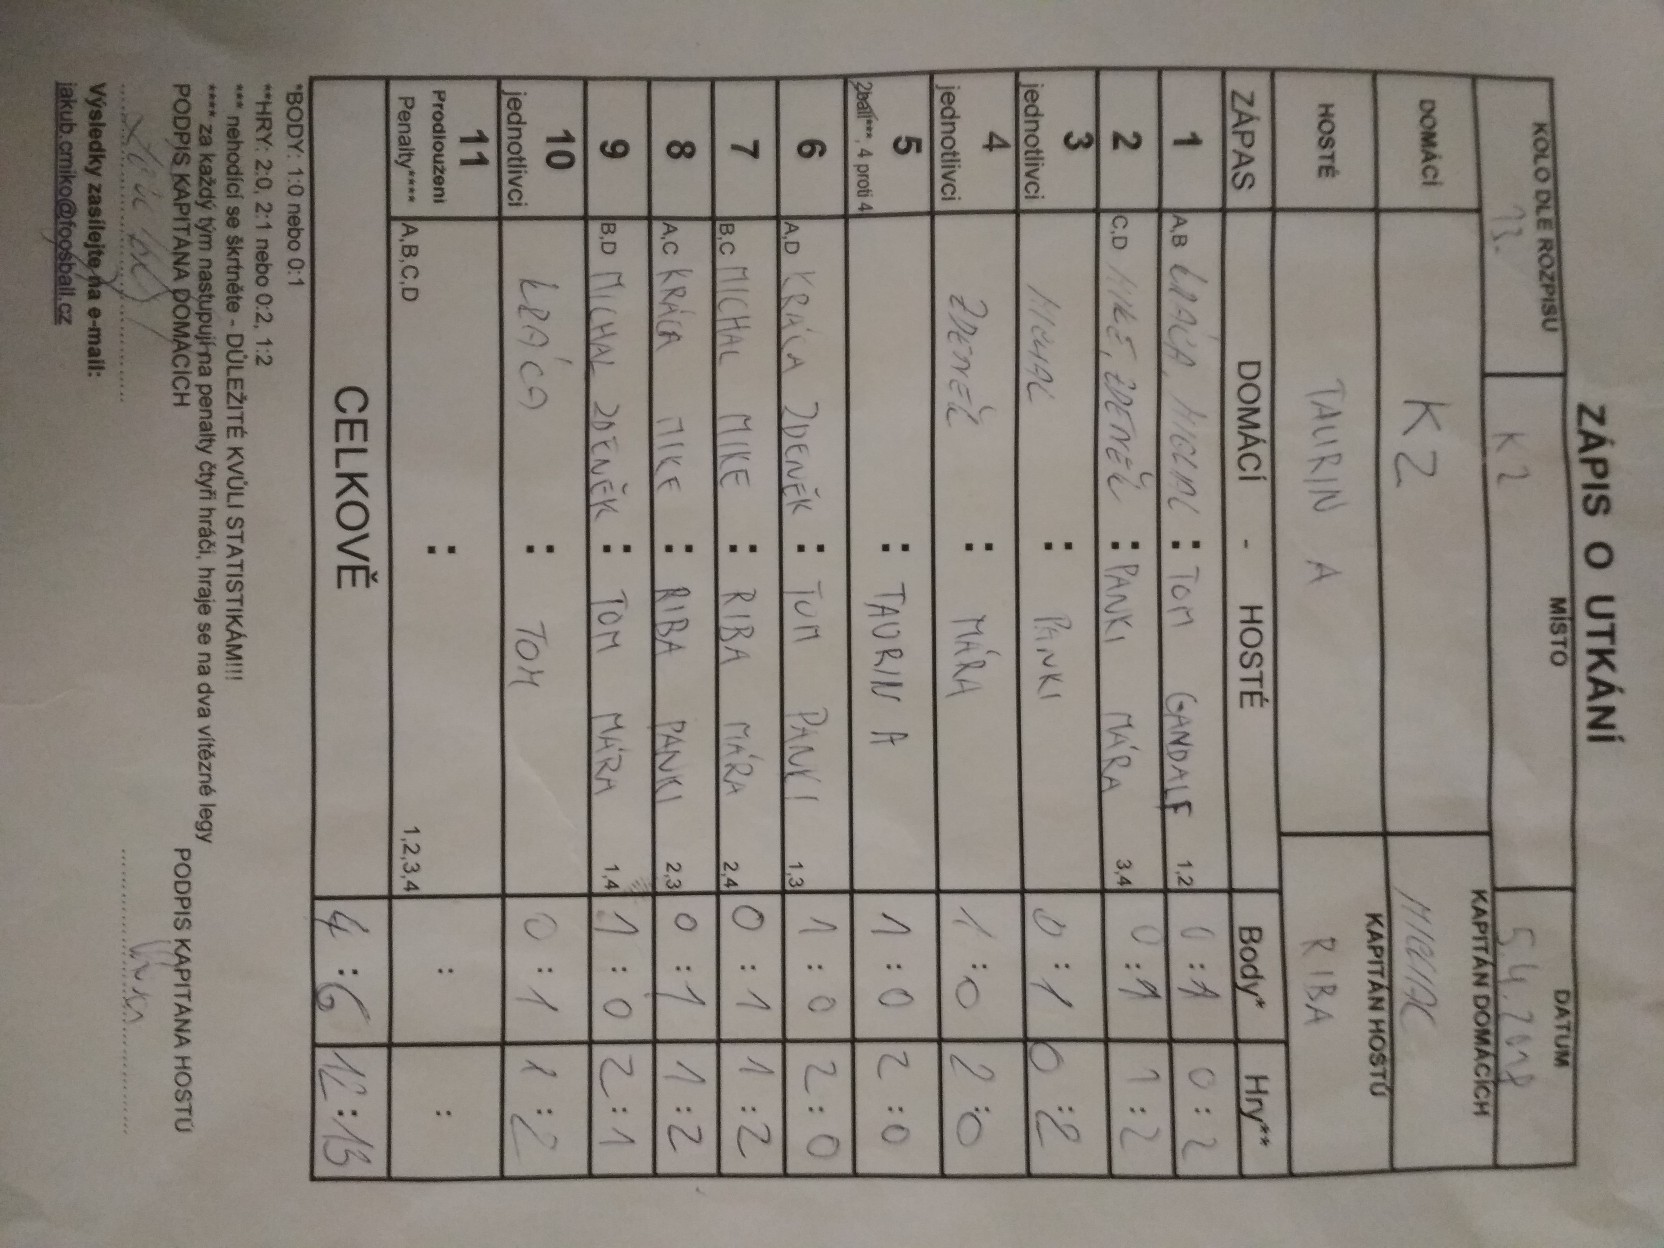 ZÁPIS O UTKÁNÍ
KOLO DLE ROZPISU MÍSTO DATUM
13. KZ 5.4.2018
DOMÁCÍ KZ KAPITÁN DOMÁCÍCH
MICHAL
HOSTÉ TAURIN A KAPITÁN HOSTŮ
RIBA
ZÁPAS DOMÁCÍ - HOSTÉ Body* Hry**
1 A,B KRÁCA, MICHAL : TOM GANDALF 1,2 0:1 0:2
2 C,D MIKE, ZDENEK : PANKI MÁRA 3,4 0:1 1:2
3 jednotlivci MICHAL : PANKI 0:1 0:2
4 jednotlivci ZDENEK : MÁRA 1:0 2:0
5 2ball***, 4 proti 4 : TAURIN A 1:0 2:0
6 A,D KRÁCA ZDENĚK : TOM PANKI 1,3 1:0 2:0
7 B,C MICHAL MIKE : RIBA MÁRA 2,4 0:1 1:2
8 A,C KRÁCA MIKE : RIBA PANKI 2,3 0:1 1:2
9 B,D MICHAL ZDENĚK : TOM MÁRA 1,4 1:0 2:1
10 jednotlivci KRÁCA : TOM 0:1 1:2
11 Prodloužení Penalty**** A,B,C,D : 1,2,3,4 : :
CELKOVĚ 4:6 12:13
*BODY: 1:0 nebo 0:1
**HRY: 2:0, 2:1 nebo 0:2, 1:2
*** nehodící se škrtněte - DŮLEŽITÉ KVŮLI STATISTIKÁM!!!
**** za každý tým nastupují na penalty čtyři hráči, hraje se na dva vítězné legy
PODPIS KAPITÁNA DOMÁCÍCH PODPIS KAPITÁNA HOSTŮ
Výsledky zasílejte na e-mail:
jakub.crniko@foosball.cz